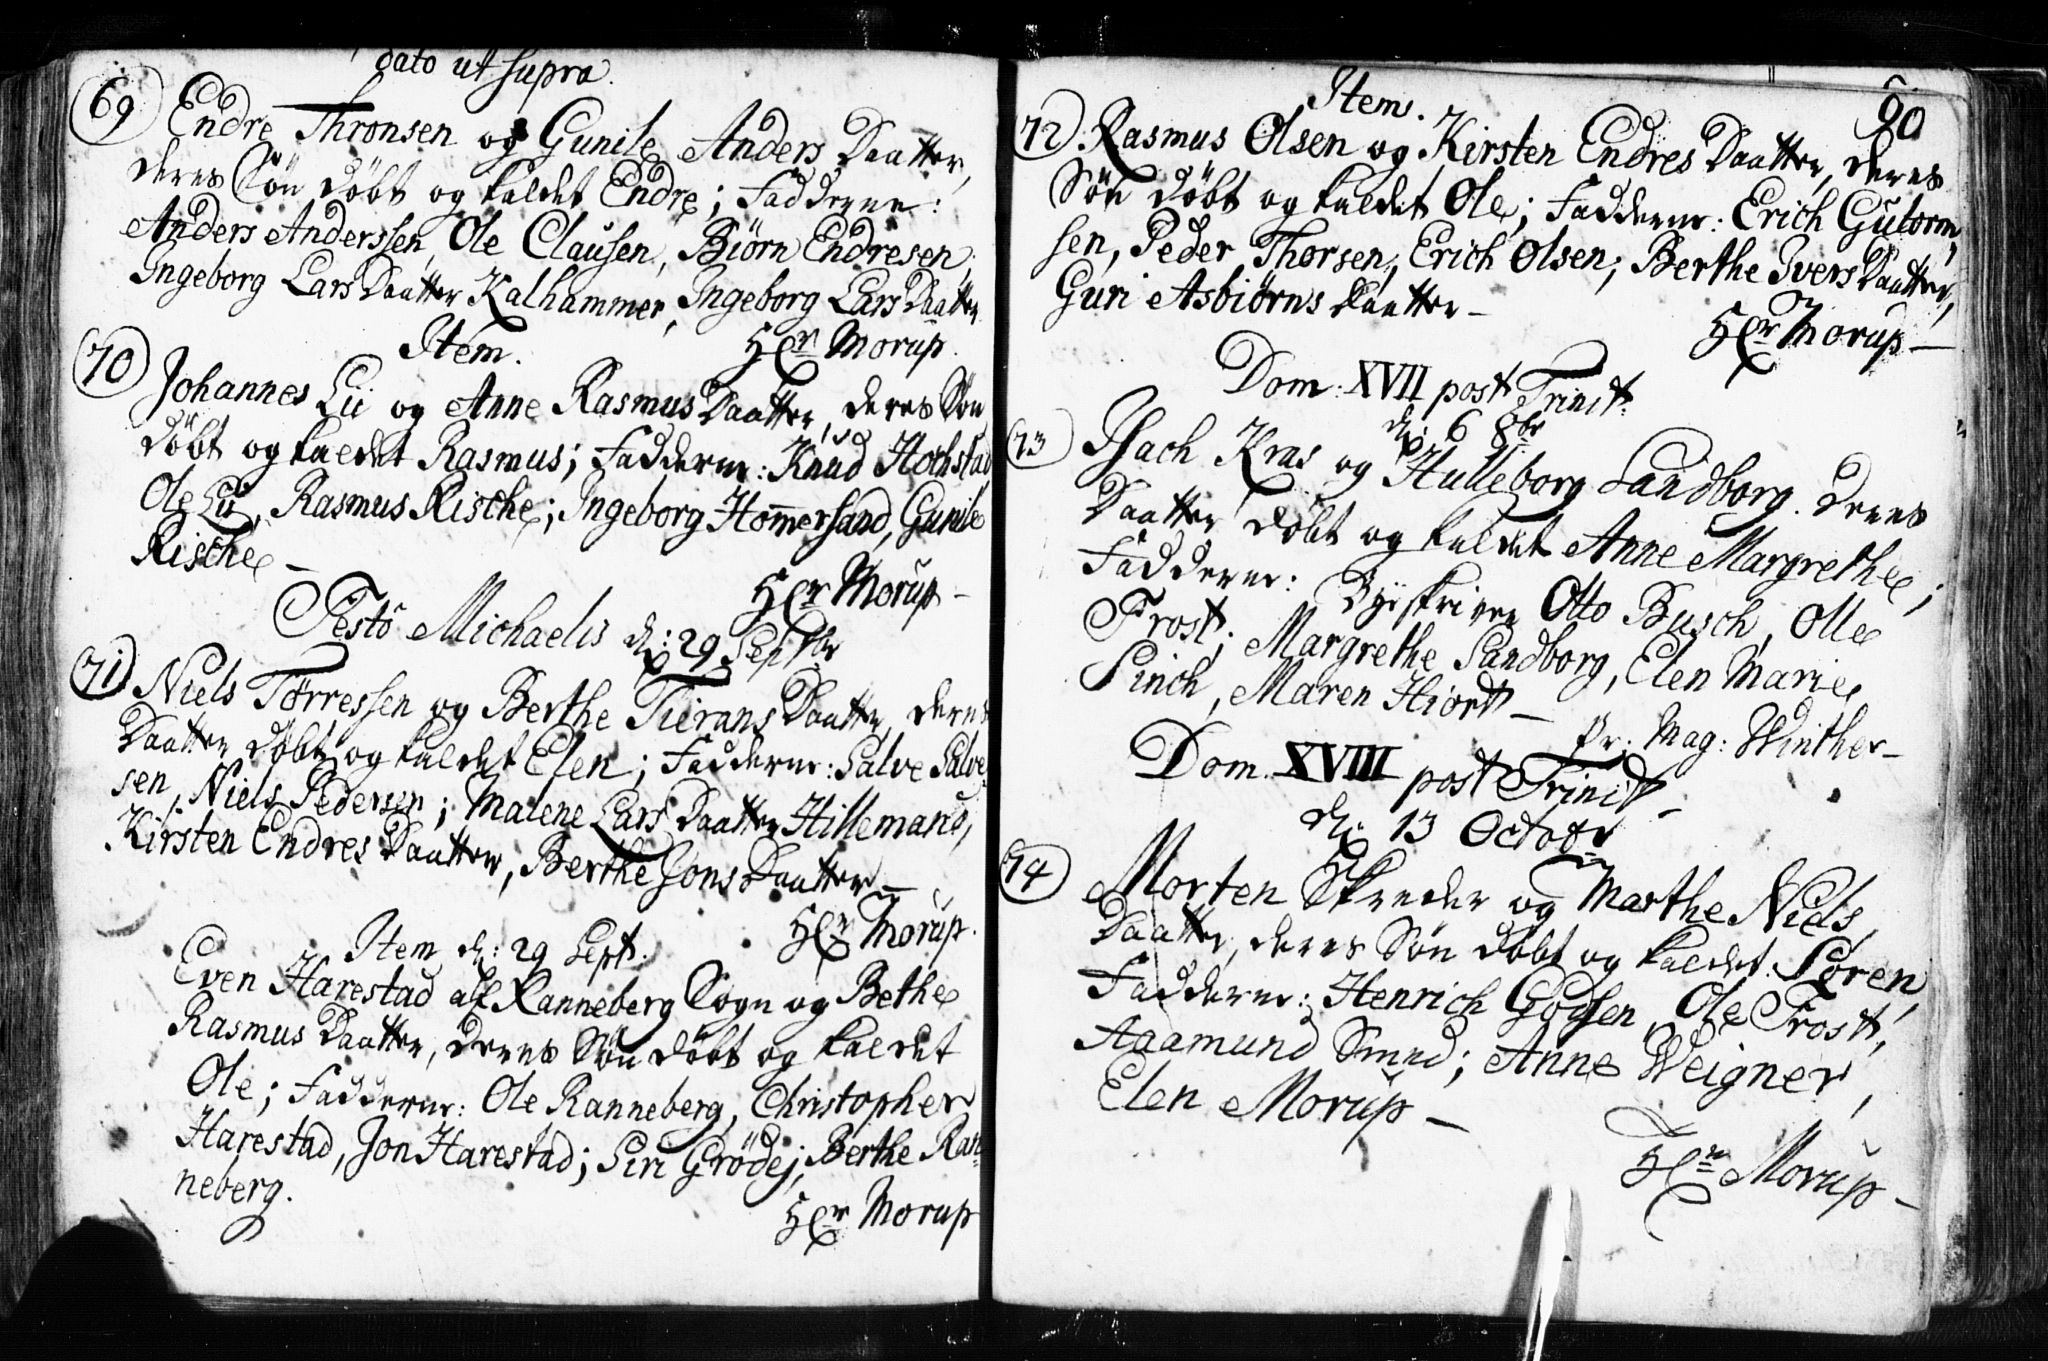 dato ut supra.
69 Endre Thronsen og Gunile Anders Daatter,
deres Søn døbt og kaldet Endre; Fadderne:
Anders Anderssen, Ole Clausen, Biørn Endresen,
Ingeborg Lars Daatter Kalhammer, Ingeborg Lars Daatter
Hr Morup.
Item.
70 Johannes Lii og Anne Rasmus Daatter, deres Søn
døbt og kaldet Rasmus; Fadderne: Knud Hochstad
Ole Lii, Rasmus Rische; Ingeborg Hom̄ersand, Gunile
Rische —
Hr Morup —
Festo Michaelis d: 29 Septbr
71 Niels Tørressen og Berthe Tierans Daatter, deres
Daatter døbt og kaldet Elen; Fadderne: Salve Salve-
sen, Niels Pedersen; Malene Lars Daatter Hillemand,
Kirsten Endres Daatter, Berthe Jons Daatter —
Hr Morup.
Item d: 29 Sept.
Even Harestad af Ranneberg Sogn og Bethe
Rasmus Daatter, deres Søn døbt og kaldet
Ole; Fadderne: Ole Ranneberg, Christopher
Harestad, Jon Harestad; Siri Grödej, Berthe Ran-
neberg.
Hr Morup
90
Item.
72 Rasmus Olsen og Kirsten Endres Daatter, deres
Søn døbt og kaldet Ole; Fadderne: Erich Gutorm-
sen, Peder Thorsen, Erich Olsen; Berthe Ivers Daatter,
Guri Asbiørns Daatter —
Hr Morup —
Dom: XVII post Trinit:
d: 6 8br
73 Isach Kras og Hulleborg Sandborg. deres
Daatter døbt og kaldet Anne Margrethe;
Fadderne: Byeskriver Otto Busch, Olle
Frost; Margrethe Sandborg, Elen Marie
Pinch, Maren Hiort —
Pr: Mag: Winther —
Dom. XVIII post Trinit —
d: 13 Octobr
74 Morten Skreder og Marthe Niels
Daatter, deres Søn døbt og kaldet Søren,
Fadderne: Henrich Godsen, Ole Frost,
Aaamund Smed; Anne Weigner,
Elen Morup —
Hr Morup —